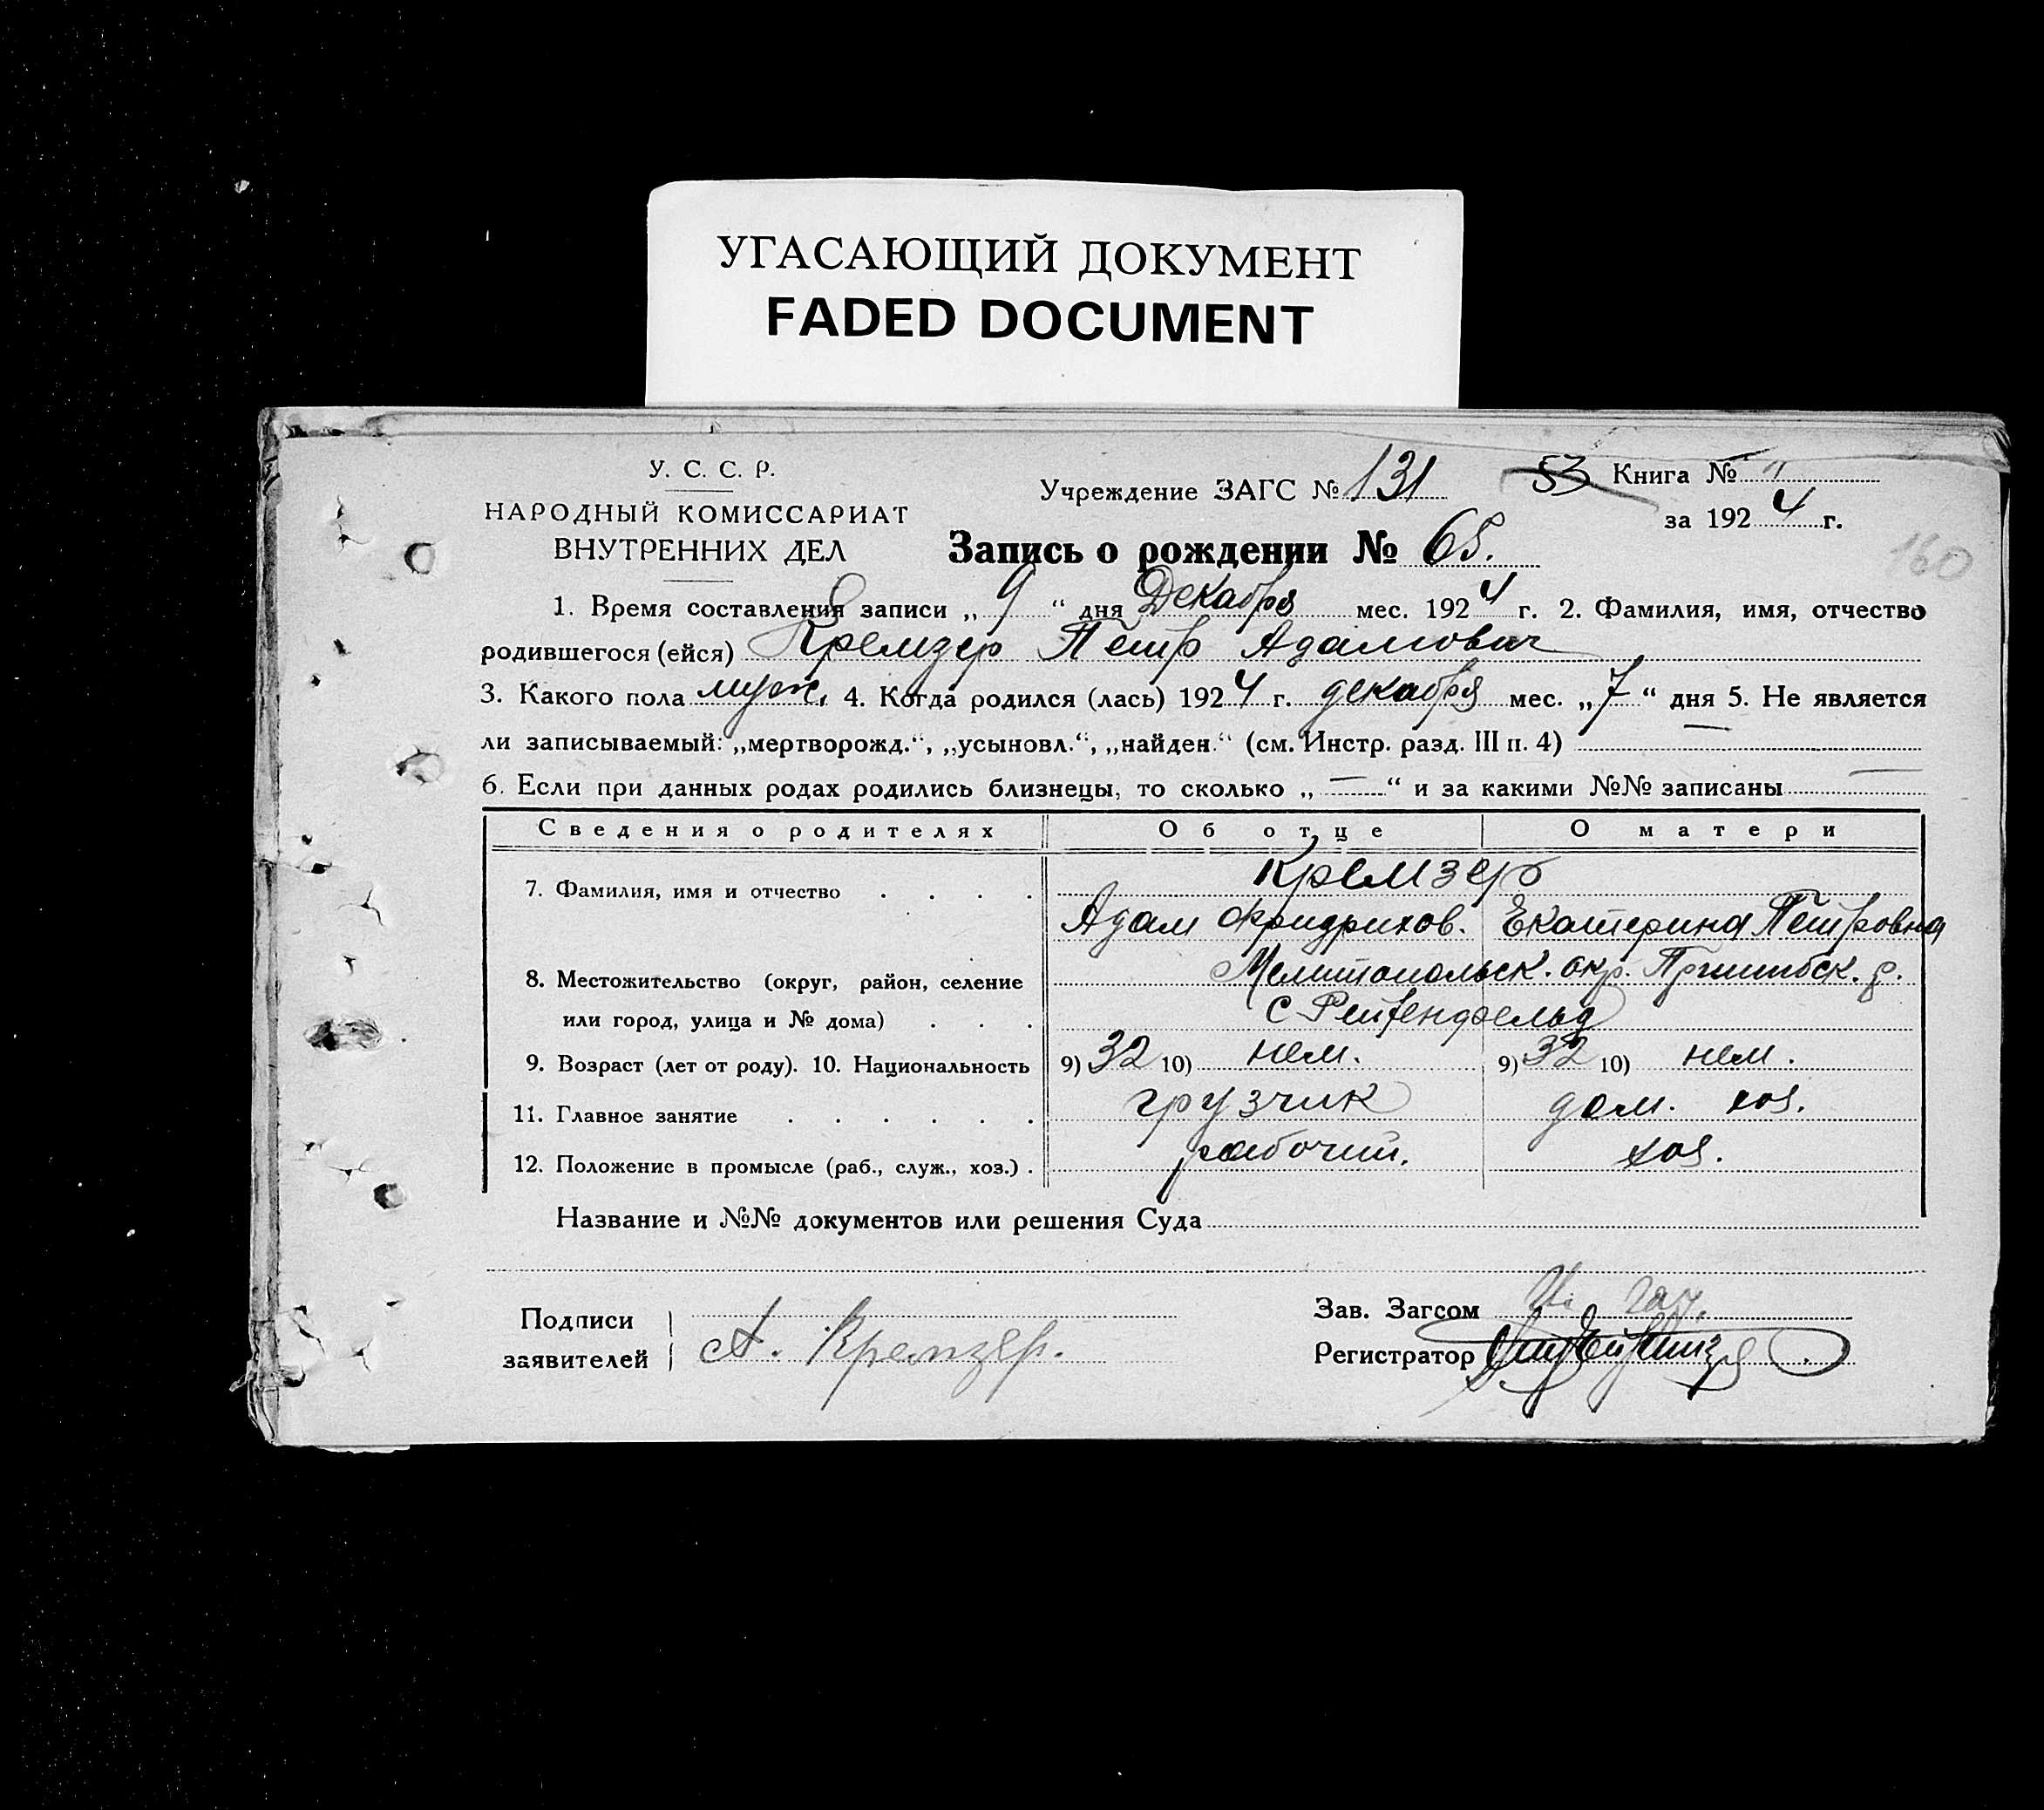 УГАСАЮЩИЙ ДОКУМЕНТ
FADED DOCUMENT
У. С. С. Р.
НАРОДНЫЙ КОМИССАРИАТ
ВНУТРЕННИХ ДЕЛ
Учреждение ЗАГС № 131
53 Книга № "
за 1924 г.
160
Запись о рождении № 65.
1. Время составления записи „ 9 “ дня Декабря мес. 1924 г. 2. Фамилия, имя, отчество
родившегося (ейся) Кремзер Петр Адамович
3. Какого пола муж. 4. Когда родился (лась) 1924 г. декабря мес. „ 7 “ дня 5. Не является
ли записываемый: „мертворожд.“, „усыновл.“, „найден.“ (см. Инстр. разд. III п. 4) —
6. Если при данных родах родились близнецы, то сколько „ — “ и за какими №№ записаны —
Сведения о родителях Об отце О матери
7. Фамилия, имя и отчество . . . . Кремзер
Адам Фридрихов. Екатерина Петровна
8. Местожительство (округ, район, селение Мелитопольск. окр. Пришибск. р.
или город, улица и № дома) . . . с Рейхенфельд
9. Возраст (лет от роду). 10. Национальность 9) 32 10) нем. 9) 32 10) нем.
11. Главное занятие . . . . . . грузчик дом. хоз.
12. Положение в промысле (раб., служ., хоз.) . рабочий. хоз.
Название и №№ документов или решения Суда
Подписи
заявителей А. Кремзер.
Зав. Загсом
Регистратор